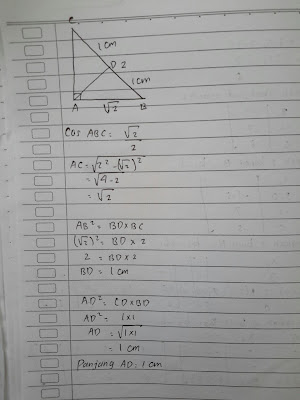 C
1 cm
D 2
1 cm
A √2 B
Cos ABC = √2/2
AC = √2² - (√2)²
= √4 - 2
= √2
AB² = BD x BC
(√2)² = BD x 2
2 = BD x 2
BD = 1 cm
AD² = CD x BD
AD² = 1 x 1
AD = √1 x 1
= 1 cm
Panjang AD = 1 cm